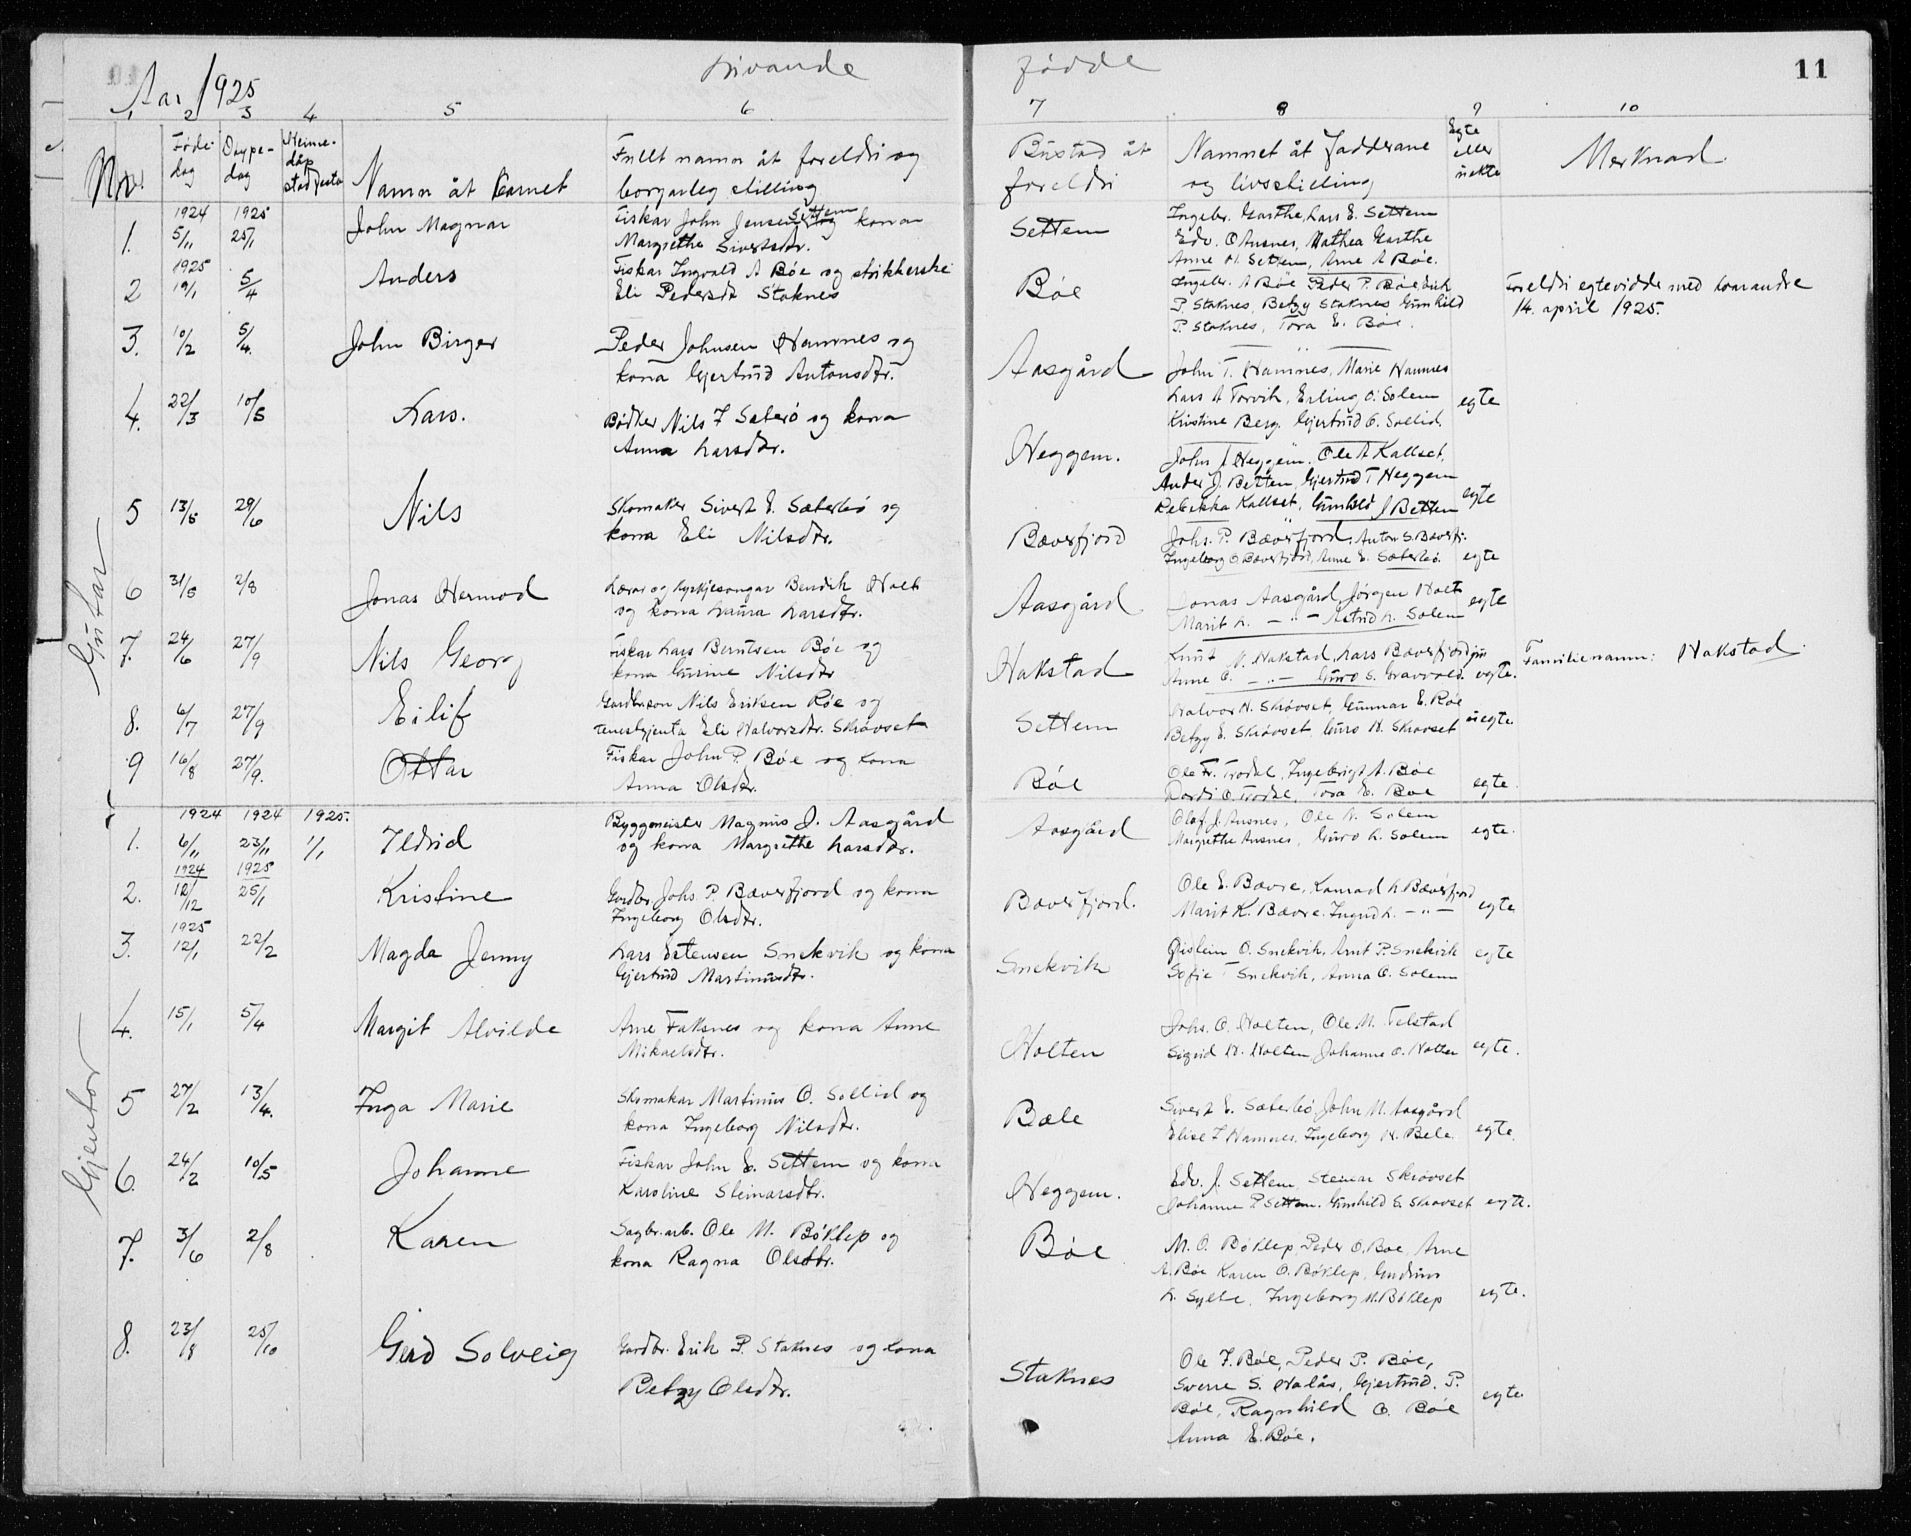 Aar 1925
Livande
fødde
11
1 2 3 4 5 6
7 8 9 10
Nr.
Føde-
dag
Døype-
dag
Heime-
dåp
stadfesta
Namn åt barnet
Fullt namn åt foreldri og
borgarleg stilling
Bustad åt
foreldri
Namnet åt Fadderane
og livsstilling
Egte
eller
uekte
Merknad
Gutar
1. 1924 5/11 1925 25/1 John Magnar
Fiskar John Jensen Settem og kona
Margrethe Sivertsdtr.
Settem
Ingebr. Garthe, Lars E. Settem
Edv. O Ansnes, Mathea Garthe
Anne H. Settem, Arne A Bøe.
2 1925 19/1 5/4 Anders
Fiskar Ingvald A Bøe og strikkerske
Eli Pedersdtr Staknes
Bøe
Ingebr. A Bøe Peder P. Bøe Erik
P. Staknes, Betzy Staknes Gunhild
P. Staknes, Tora E. Bøe.
Foreldri egtevidde med kvarandre
14. april 1925.
3. 10/2 5/4. John Birger
Peder Johnsen Hamnes og
kona Gjertrud Antonsdtr.
Aasgård
John T. Hamnes, Marie Hamnes
Lars A Torvik, Erling O. Solem
Kristine Berg. Gjertrud O. Sollid.
egte
4. 22/3 10/5 Lars.
Bødker Nils J Sæterbø og kona
Anna Larsdtr.
Heggem.
John J Heggem. Ole A Kallset.
Ander J. Betten, Gjertrud T Heggem
Rebekka Kallset, Gunhild J Betten
egte
5 13/5 29/6 Nils
Skomaker Sivert E. Sæterbø og
kona Eli Nilsdtr.
Bæverfjord
Johs. P. Bæverfjord, Anton S. Bæverfj.
Ingeborg O Bæverfjord, Anne E. Sæterbø.
egte
6 31/5 2/8 Jonas Hermod
Lærar og kyrkjesongar Bendik Holt
og kona Laura Larsdtr.
Aasgård
Jonas Aasgård, Jørgen Holt
Marit L. —"— Astrid L. Solem
egte
7. 24/6 27/9 Nils Georg
Fiskar Lars Berntsen Bøe og
kona Gurine Nilsdtr
Hakstad
Knut N. Hakstad, Lars Bæverfjord jun
Anne O. —"— Guro S. Gravvold.
egte.
Familienamn: Hakstad.
8. 6/7 27/9 Eilif
Gardbr.son Nils Eriksen Røe og
tenestgjenta Eli Halvorsdtr. Skrøvset
Settem
Halvor H. Skrøvset, Gunnar E. Røe
Betzy E. Skrøvset Guro H. Skrøvset
uegte.
9 16/8 27/9. Ottar
Fiskar John P. Bøe og kona
Anna Olsdtr.
Bøe
Ole Fr. Trodal, Ingebrigt A. Bøe
Dordi O. Trodal, Tora E. Bøe
egte
Gjentor
1. 1924 6/11 1924 23/11 1925. 1/1 Ildrid
Byggmeister Magnus J. Aasgård
og kona Margrethe Larsdtr.
Aasgård
Olaf J. Ansnes, Ole L. Solem
Margrethe Ansnes, Guro L. Solem
egte.
2. 1924 12/12 1925 25/1 Kristine
Gardbr. Johs. P. Bæverfjord og kona
Ingeborg Olsdtr.
Bæverfjord.
Ole E. Bævre, Konrad L. Bæverfjord
Marit K. Bævre. Ingrid L. —"—
egte
3. 1925 12/1 22/2 Magda Jenny
Lars Estensen Snekvik og kona
Gjertrud Martinusdtr.
Snekvik
Øistein O. Snekvik, Arnt P. Snekvik
Sofie T Snekvik, Anna O. Solem
egte
4. 15/1 5/4 Margit Alvilde
Arne Faksnes og kona Anne
Mikaelsdtr.
Holten
Johs. O. Holten, Ole M. Telstad
Sigrid H. Holten, Johanne O. Holten
egte.
5 27/2 13/4. Inga Marie
Skomakar Martinus O. Sollid og
kona Ingeborg Nilsdtr.
Bæle
Sivert E. Sæterbø, John M. Aasgård
Elise J Hamnes. Ingeborg H. Bele.
egte.
6. 24/2 10/5 Johanne
Fiskar John E. Settem og kona
Karoline Steinarsdtr.
Heggem.
Edv. J. Settem, Steinar Skrøvset
Johanne P Settem. Gunhild E. Skrøvset
egte.
7. 3/6 2/8 Karen
Sagbr.arb. Ole M. Bøklep og
kona Ragna Olsdtr.
Bøe
M. O. Bøklep, Peder O. Bøe, Arne
A. Bøe Karen O. Bøklep, Gudrun
L. Sylte, Ingeborg M. Bøklep
egte.
8. 23/8 25/10 Gerd Solveig
Gardbr. Erik P. Staknes og kona
Betzy Olsdtr.
Staknes
Ole J. Bøe, Peder P. Bøe,
Sverre S. Halås, Gjertrud. P.
Bøe, Ragnhild O. Bøe
Anna E. Bøe.
egte